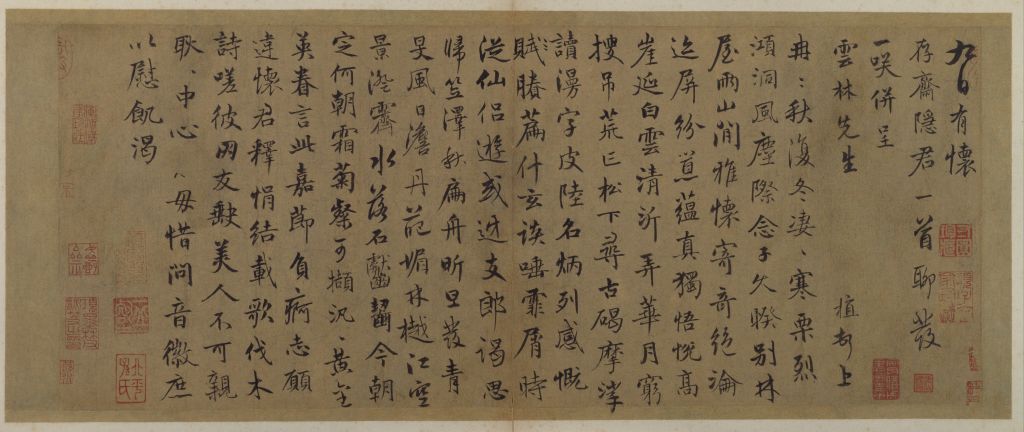 九日有懷
存齋隱君一首聊發
一咲併呈
雲林先生 植頓上
冉〻秋復冬凄〻寒栗烈
澒洞風塵際念子久睽別林
屋兩山間雅懷寄奇絕淪
迩屏紛蘊真獨悟悅高
崖延白雲清沂弄華月窮
搜吊荒亡松下尋古碣摩挲
讀漫字皮陸名炳列感慨
賦賸篇什玄談唾霏屑時
從仙侶遊或訪支郎謁思
歸笠澤秋扁舟昕旦發青
旻風日澹丹葩媚林樾江空
景澄霽水落石齧今朝
定何朝霜菊粲可擷汎〻黃金
英眷言此嘉節負痾志願
違懷君釋悁結載歌伐木
詩嗟彼朋友缺美人不可親
耿〻中心毋惜問音徽庶
以慰飢渴